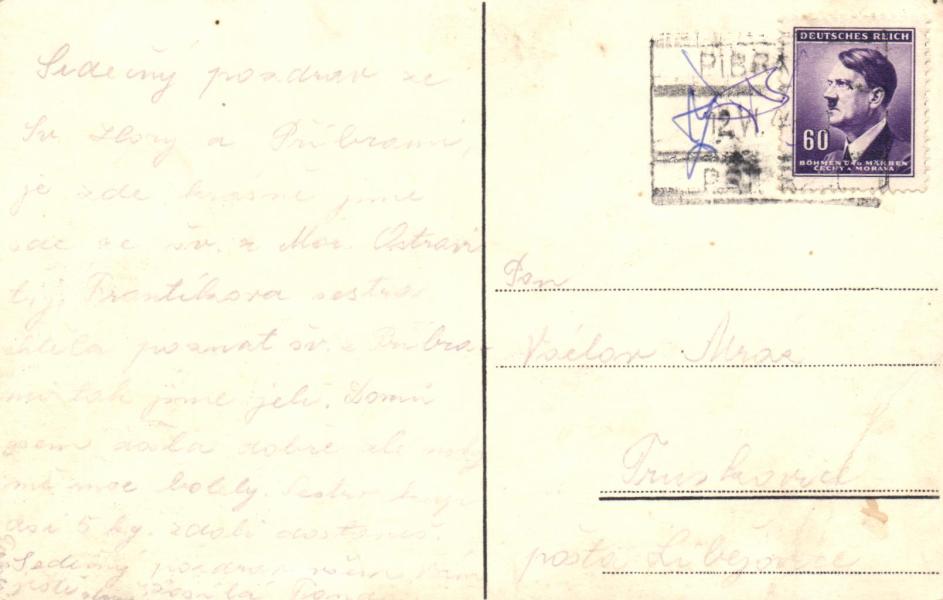 Srdečný pozdrav ze
Sv. Hory a Příbrami,
je zde krásně jsme
zde ze šv. z Mor. Ostravi
t.j. Frantíkova sestra
chtěla poznat šv. z Příbra-
mi tak jsme jeli. Domů
jsem došla dobře ale nohy
mě moc bolely. Sestro
asi 5 kg. zdali dostaneš.
Srdečný pozdrav všem
zasílá
PŘÍBRAM
12.VI.4
DEUTSCHES REICH
60
BÖHMEN U. MÄHREN
ČECHY A MORAVA
Pan
Václav Mraz
Truskovice
pošta Libějovice